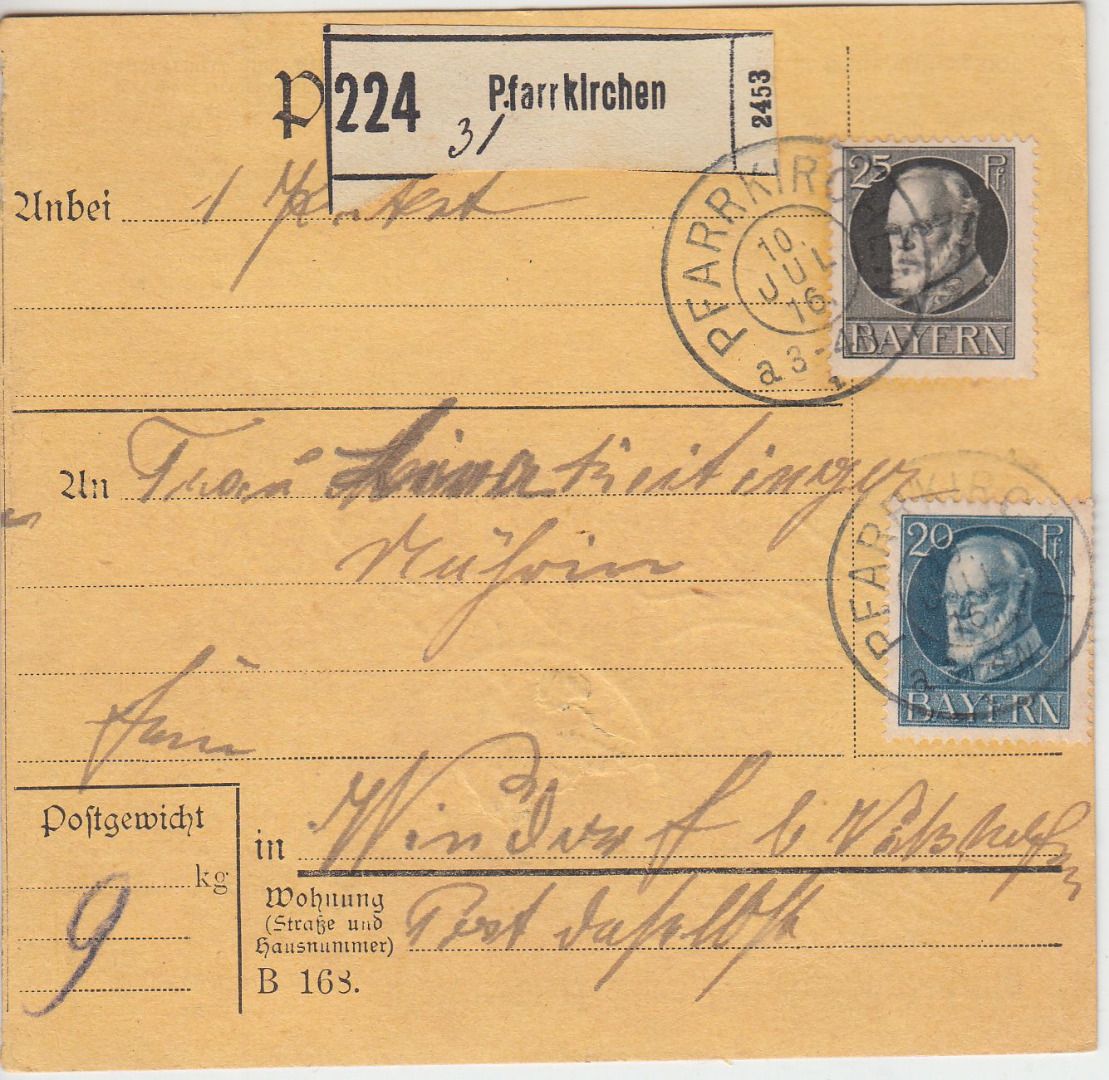 P 224 Pfarrkirchen 2453
31
Anbei 1 Paket
25 Pf
BAYERN
PFARRKIRCH
10. JUL 16.
a 3-4
An Frau Reitinger
20 Pf
BAYERN
PFARRKIRCH
16
Postgewicht
kg
9
in Windorf b
Wohnung
(Straße und
Hausnummer)
Post daselbst
B 168.